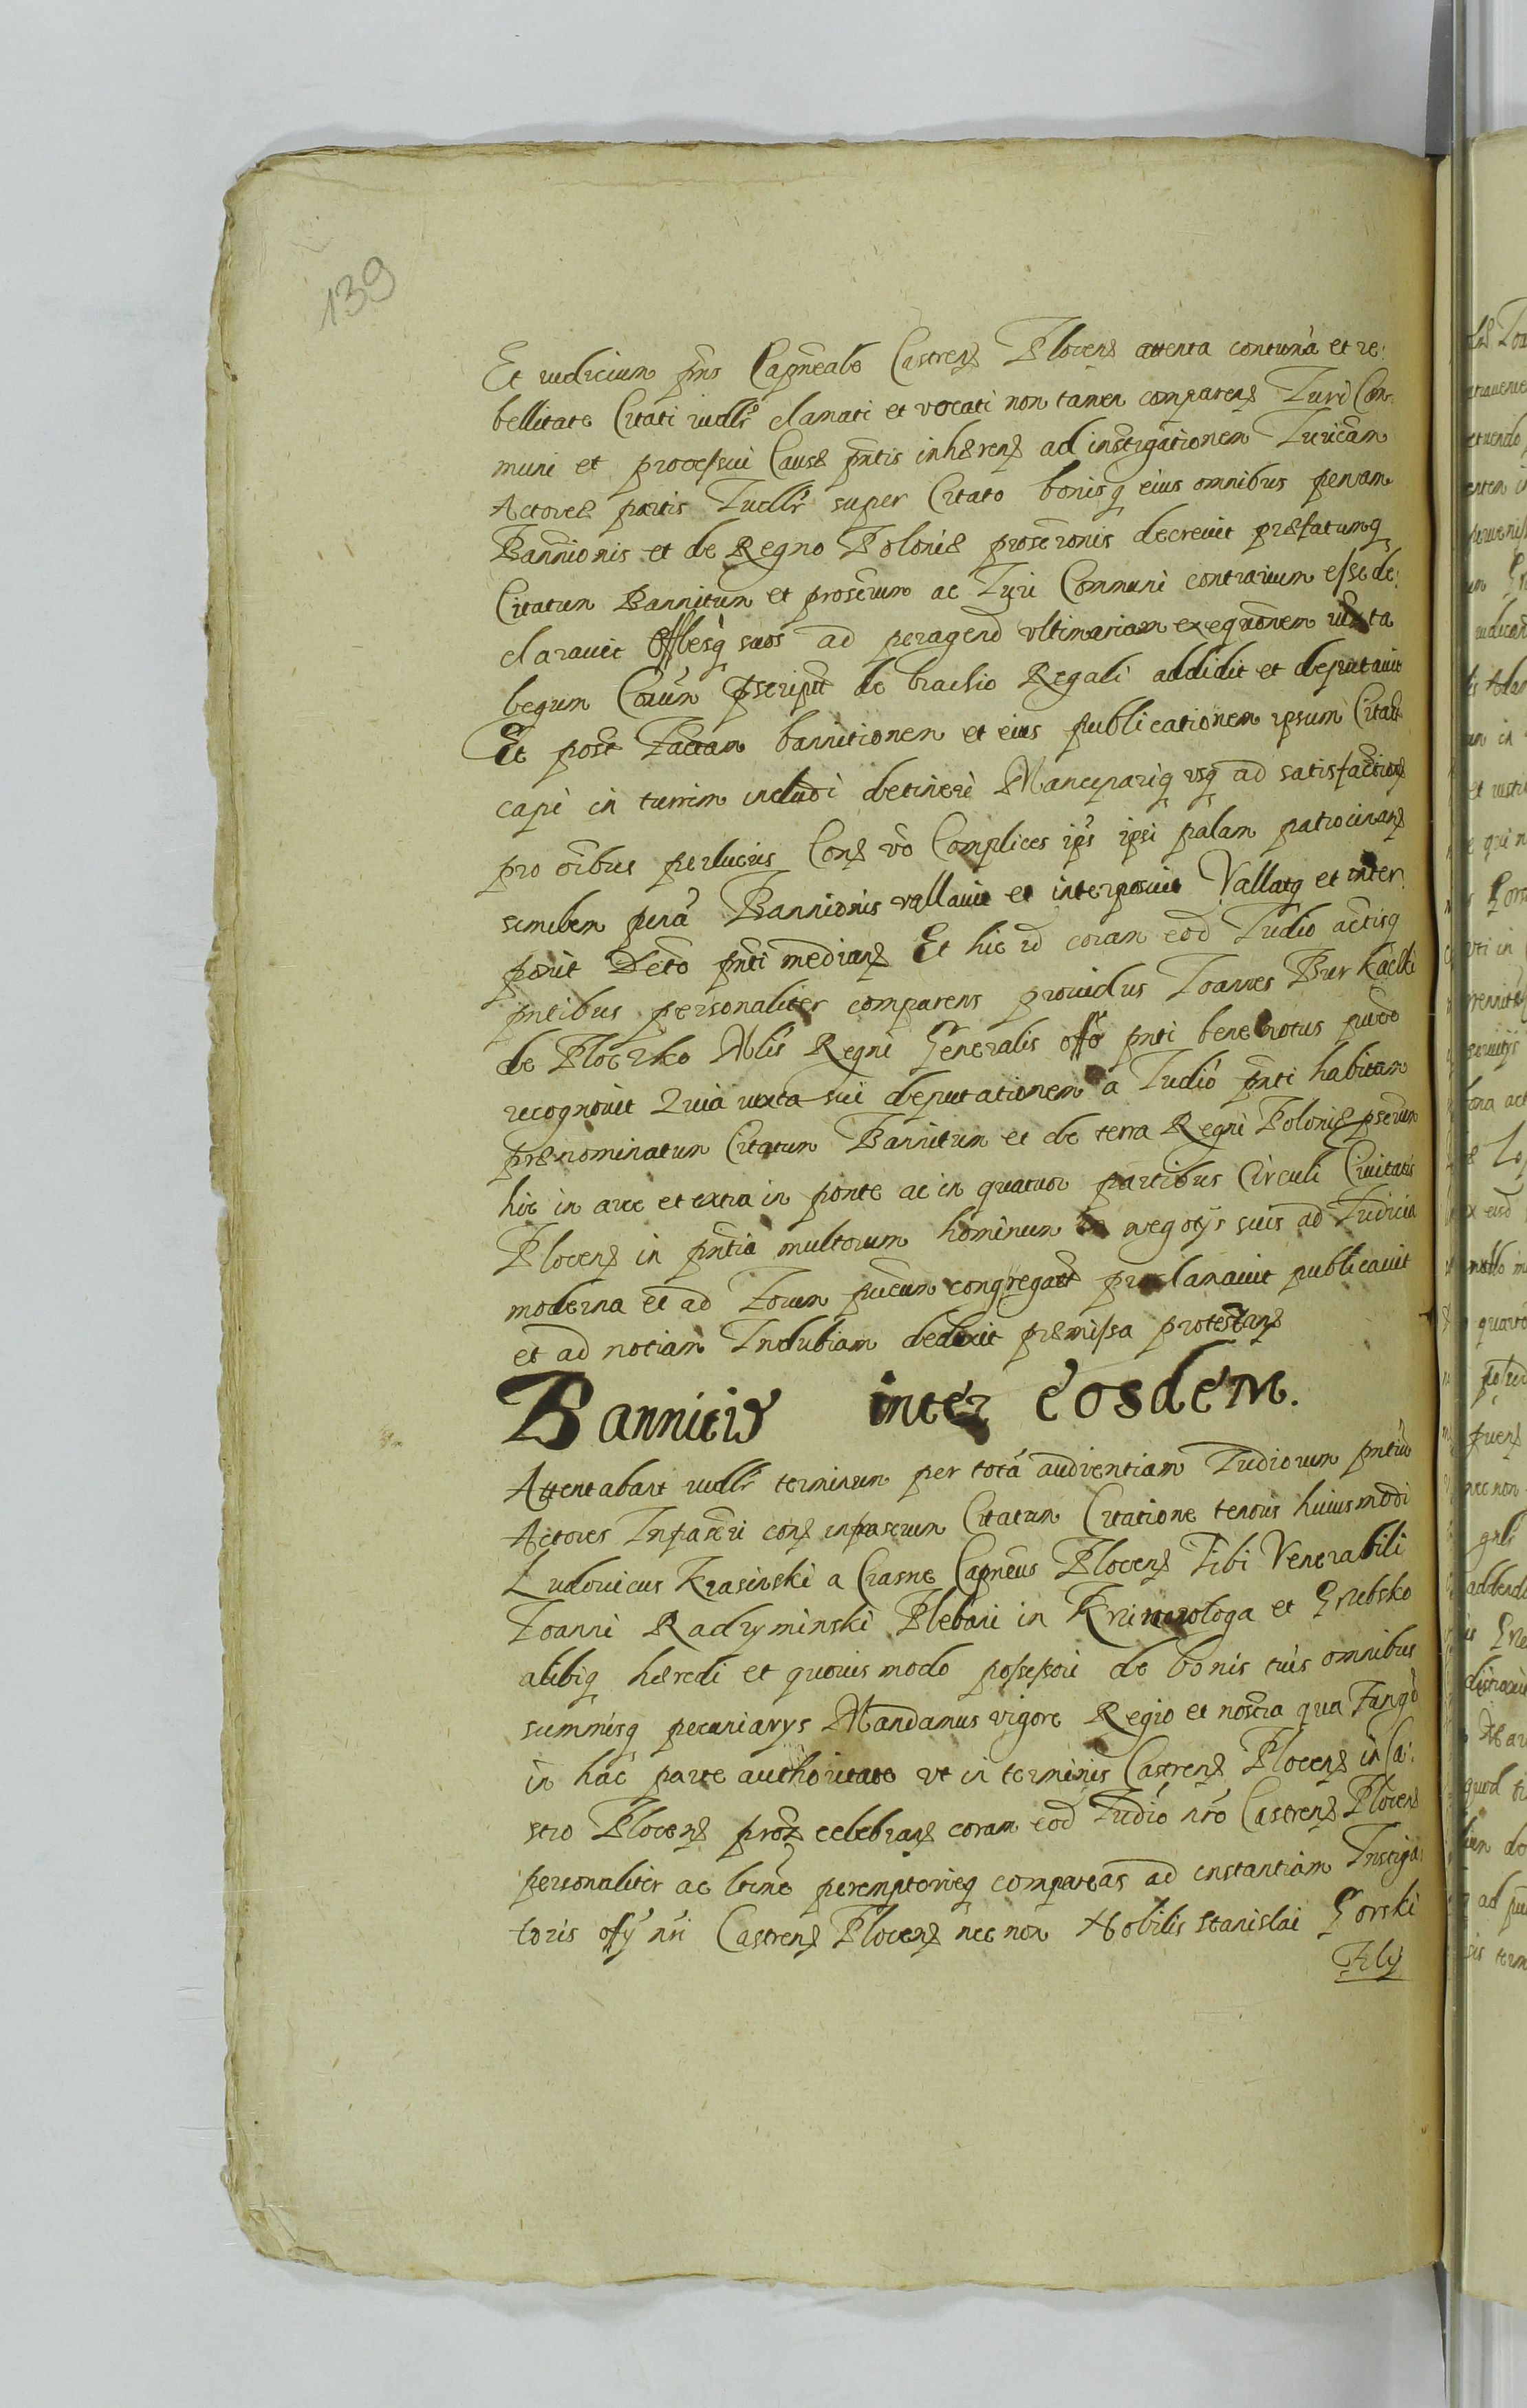 139
Et iudicium pñs Capñeale Castren Plocen attenta contuma et re:
bellitate Citati iudllr clamati et vocati non tamen comparen Juri Com:
muni et processui Causę pñtis inhęren ad instigationem Juricam
Actoreę partis Judllr super Citato bonisq eius omnibus penam
Bannionis et de Regno Polonię proscronis decrevit pręfatumq
Citatum Bannitum et proscrum ac Juri Communi contrarium esse de:
claravit Offlesq suos ad peragend ultimariam exeqnonem iuxta
legum Coium pscript de brachio Regali addidit et deputavit
Et post Factam bannitionem et eius publicationem ipsum Citat
capi in turrim includi detineri Manciparıq usq ad satisfaction
pro oibus perlucris Cons vo Complices ips ipsi palam patrocinan
similem pena Bannionis vallavit et interposuit Vallatq et inter
ponit Decto pnti median Et hic id coram eod Judio actisq
pntibus personaliter comparens providus Joannes Burkacki
de Ploczko Mlis Regni Generalis offo pnti bene notus
recognovit Quia iuxta sui deputationem a Judio pnti habitam
prę nominatum Citatum Bannitum et de terra Regni Polonię pscrum
hic in arce et extra in ponte ac in quatuor partibus Circuli Civitatis
Plocen in pntia multorum hominum in negotys suis ad Judicia
moderna et ad Forum congregat proclamavit publicavit
et ad notiam Indubiam deduxit pręmissa protestan
Bannitio inter eosdem.
Attentabant iudllr terminum per tota audientiam Judiorum pntiu
Actores Infascri cons infrascrum Citatum Citatione tenoris huiusmodi
Ludovicus Krasinski a Crasne Capneus Plocen Tibi Venerabili
Joanni Radzyminski Plebani in et Grebsko
alibiq hęredi et quovis modo possessori de bonis tuis omnibus
summisq pecuniarys Mandamus vigore Regio et nostra qua Fungo
in hac parte authoritate ut in terminis Castren Plocen in Ca:
stro Plocen prox celebran coram eod Judio nro Castren Plocen
personaliter ac ltime peremptorieq compareas ad instantiam Instiga:
toris offy nri Castren Plocen nec non Nobilis Stanislai Gorski
Fily